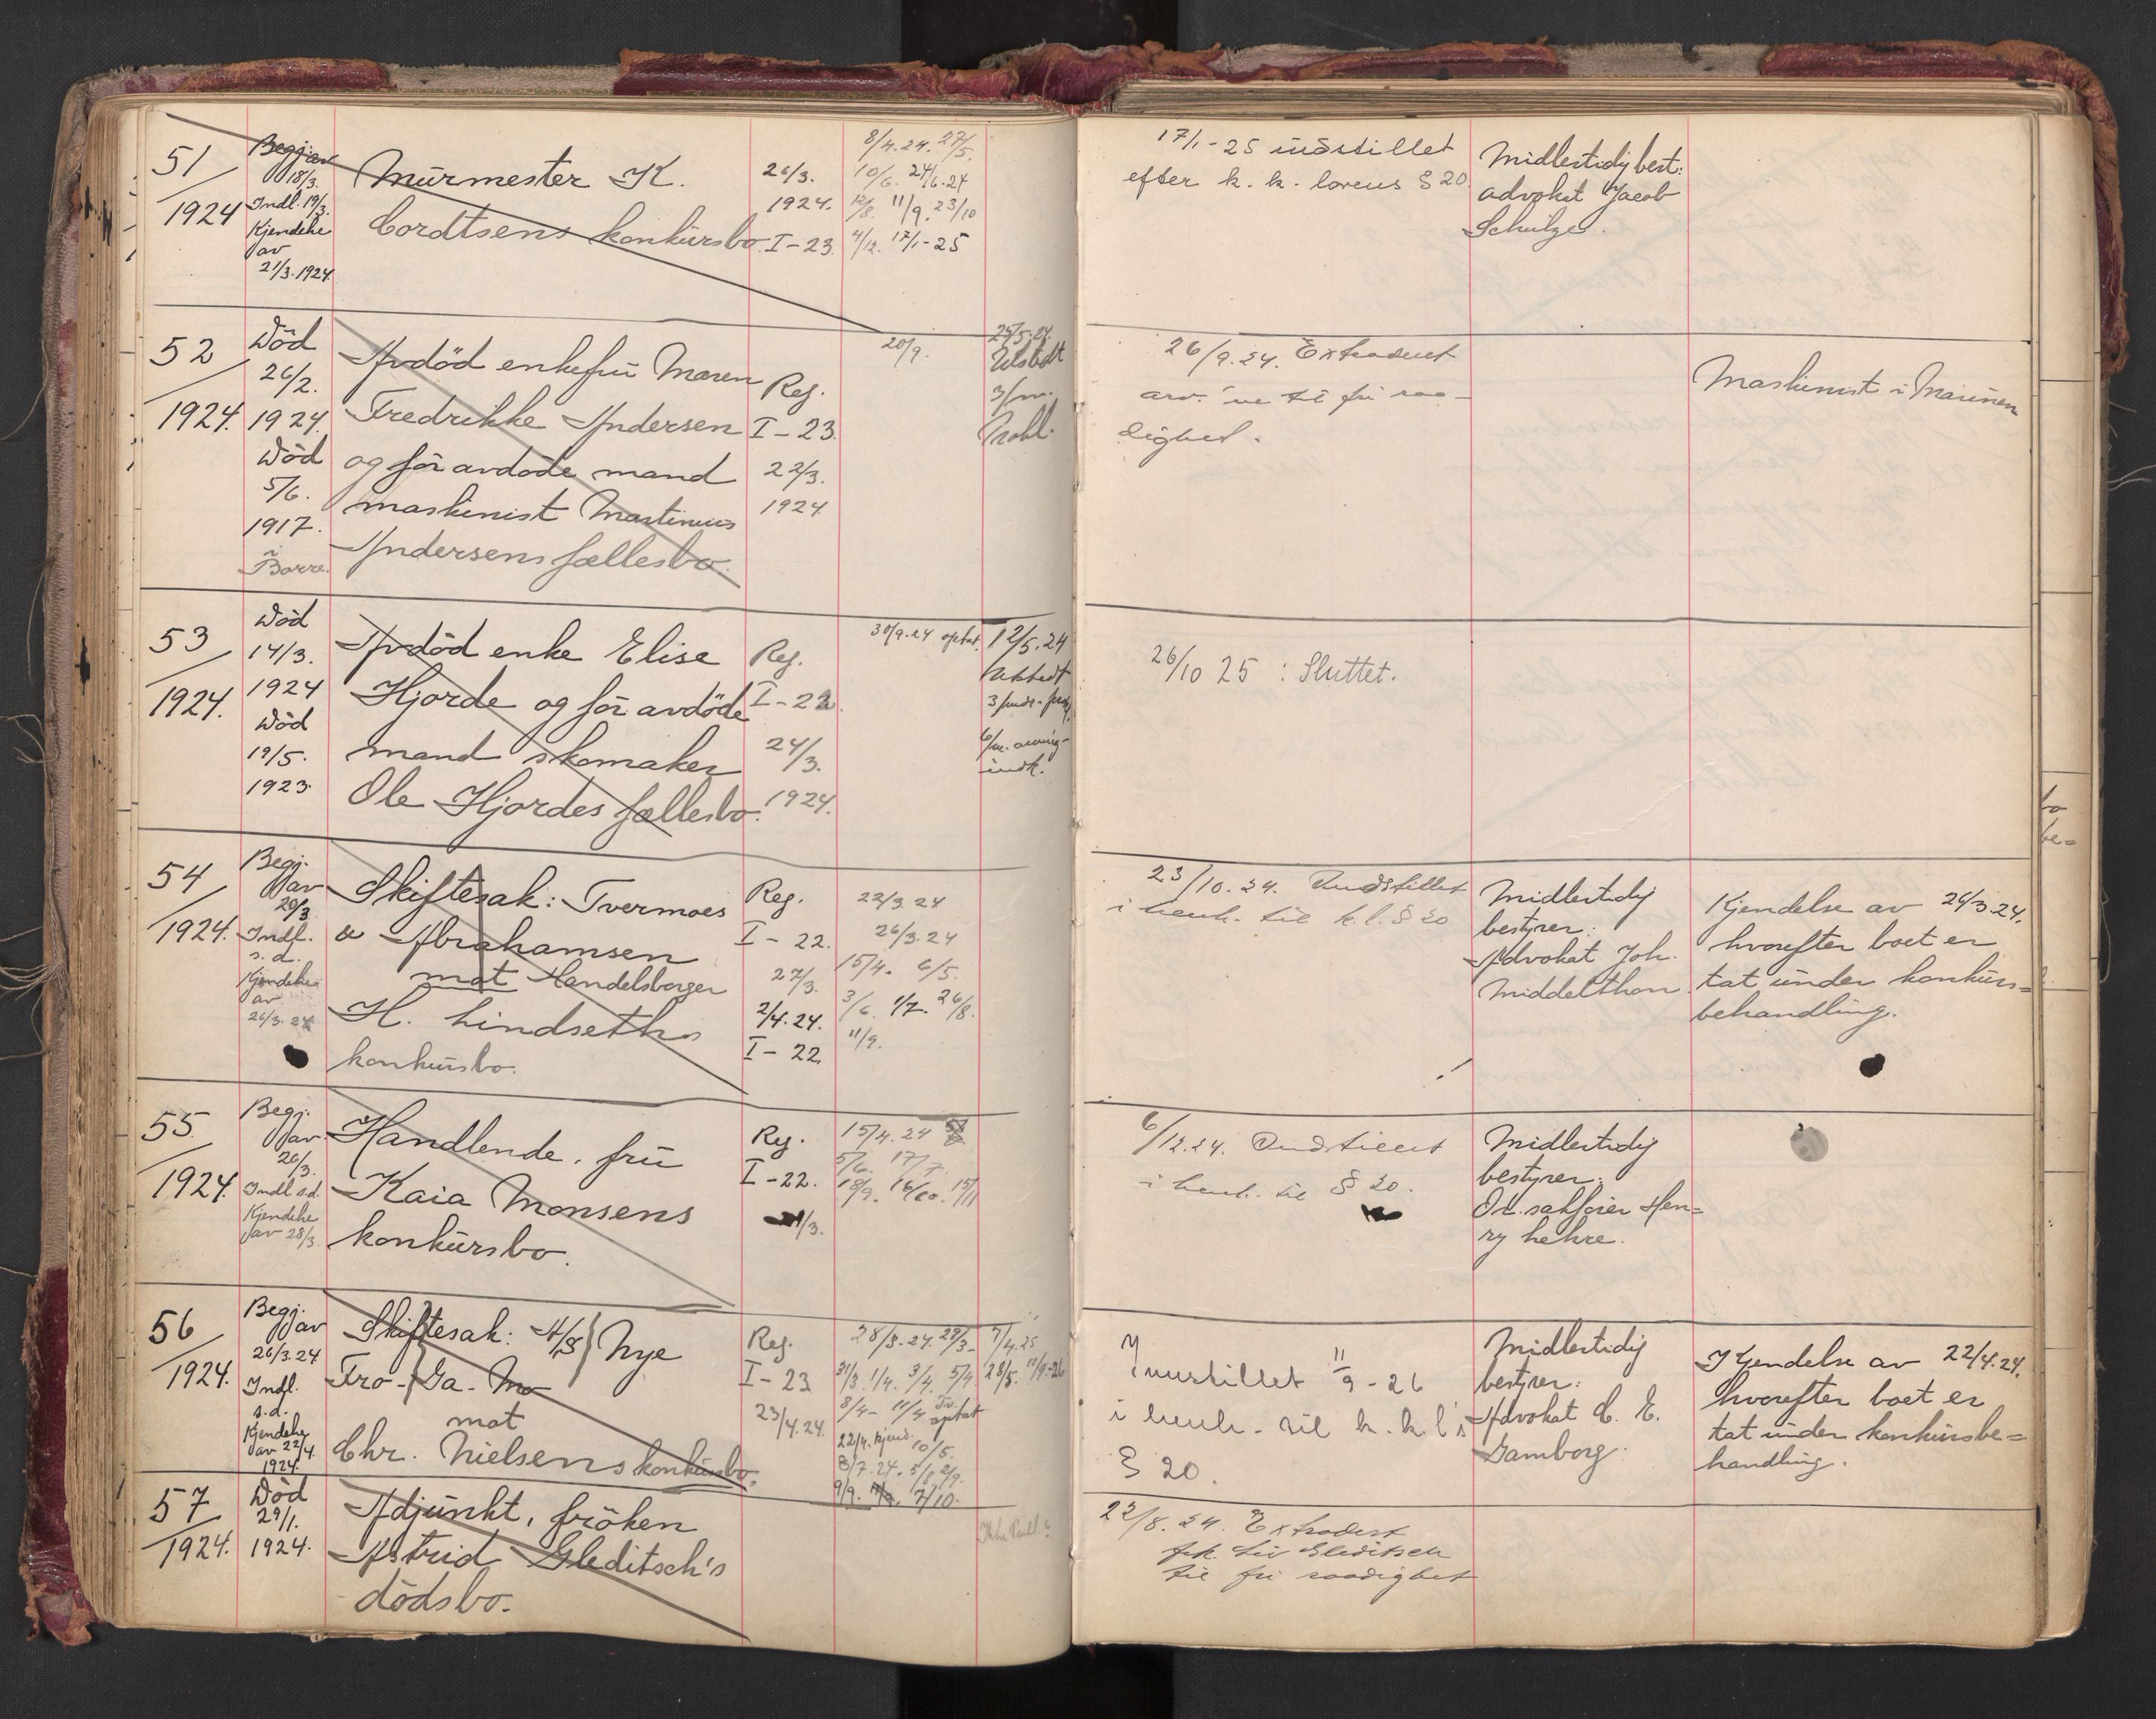 51
1924
Begj. av
18/3.
Indl. 19/3.
Kjendelse
av
21/3.1924.
Murmester K.
Cordtsens konkursbo.
26/3.
1924.
I-23.
8/4.24. 27/5.
10/6. 24/6.24
12/8. 11/9. 23/10
4/12. 17/1-25
17/1-25 indstillet
efter k. k. lovens § 20
Midlertidig best:
advokat Jacob
Schulze.
52
1924.
Död
26/2.
1924.
Död
5/6.
1917.
i
Borre.
Avdöd enkefru Maren
Fredrikke Andersen
og för avdöde mand
maskinist Martinius
Andersens fællesbo.
Reg.
I-23.
22/3.
1924.
20/9.
25/5.24.
Utstedt
3/m.
Prokl.
26/9.24. Extraderet
arv. ne til fri raa-
dighed.
Maskinist i Marinen
53
1924.
Död
14/3.
1924
Död
19/5.
1923.
Avdöd enke Elise
Hjorde og för avdöde
mand skomaker
Ole Hjordes fællesbo.
Reg.
I-22.
24/3.
1924.
30/9.24 optat.
12/5.24
Utstedt
26/10 25 : Sluttet.
54
1924.
Begj.
av
20/3
Indl.
s.d.
Kjendelse
av
26/3.24
Skiftesak: Tvermoes
& Abrahamsen
mot Handelsborger
H. Lindseths
konkursbo.
Reg.
I-22.
27/3.
2/4.24.
I-22.
22/3.24
26/3.24
15/4. 6/5.
3/6. 1/7. 26/8.
11/9.
23/10.24. Indstillet
i henh. til k.l. § 20
Midlertidig
bestyrer:
Advokat Joh.
Middelthon.
Kjendelse av 26/3.24.
hvorefter boet er
tat under konkurs=
behandling.
55
1924.
Begj.
av
26/3.
Indl s.d.
Kjendelse
av 28/3.
Handlende, fru
Kaia Monsens
konkursbo.
Reg.
I-22.
/3.
15/4.24
5/6. 17/7.
18/9. 16/10. 15/11
6/12.24. Indstillet
i henh. til § 20.
Midlertidig
bestyrer:
O.r.sakförer Hen=
ry Lehre.
56
1924.
Begj.
av
26/3.24
Indl.
s.d.
Kjendelse
av 22/4.
1924.
Skiftesak: A/S Nye
Fro-Ga-Mo
mot
Chr. Nielsens konkursbo.
Reg.
I-23
23/4.24.
28/3.24. 29/3- 7/4.25
31/3. 1/4. 3/4. 5/4 28/5. 11/9-26
8/4- 11/4 optat
22/4. kjend. 10/5.
8/7.24.
9/9. 7/10.
Innstillet 11/9-26
i henh. til k.k.l's
§ 20.
Midlertidig
bestyrer:
Advokat C. E.
Gamborg.
Kjendelse av 22/4.24.
hvorefter boet er
tat under konkursbe=
handling.
57
1924.
Död
29/1.
1924.
Adjunkt, fröken
Astrid Gleditsch's
dödsbo.
22/8.24. Extraderet
frk. Liv Gleditsch
til fri raadighet